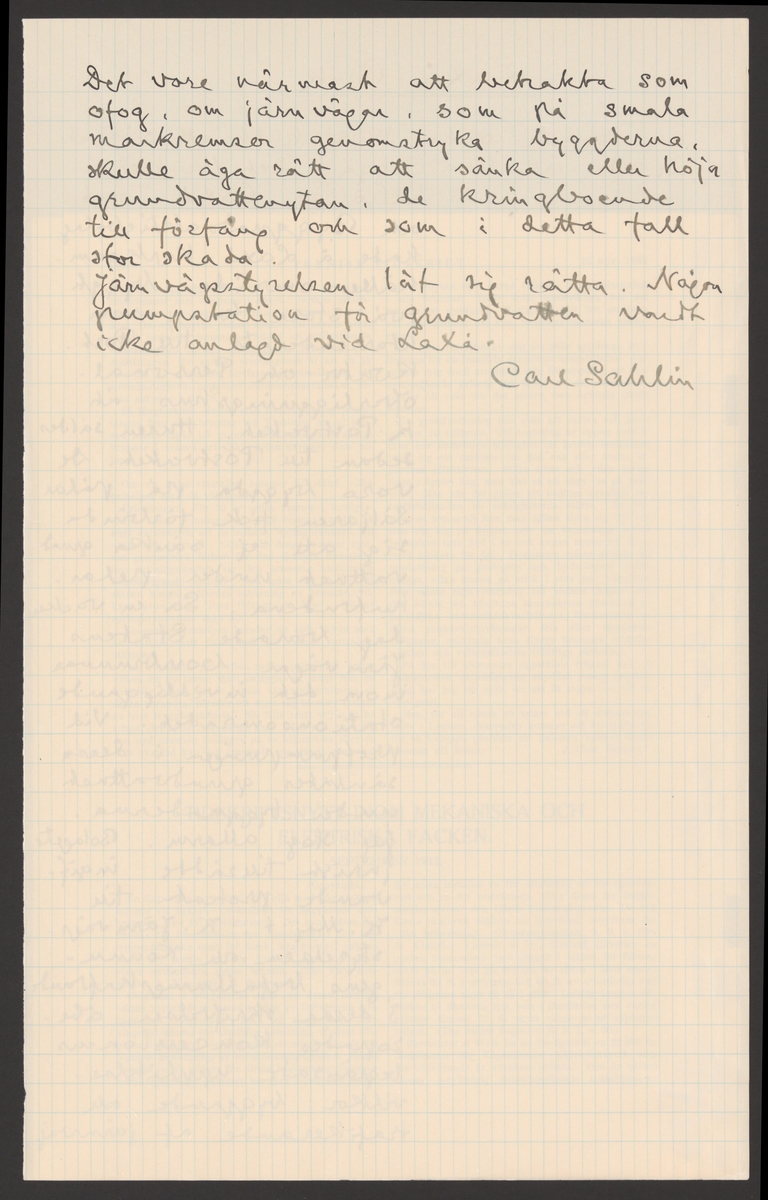 Det vore närmast att betrakta som
ofog, om järnvägar, som på smala
markremser genomstryka bygderna,
skulle äga rätt att sänka eller höja
grundvattenytan, de kringboende
till förfång och som i detta fall
stor skada.
Järnvägsstyrelsen lät sig rätta. Någon
pumpstation för grundvatten vardt
icke anlagd vid Laxå.
Carl Sahlin